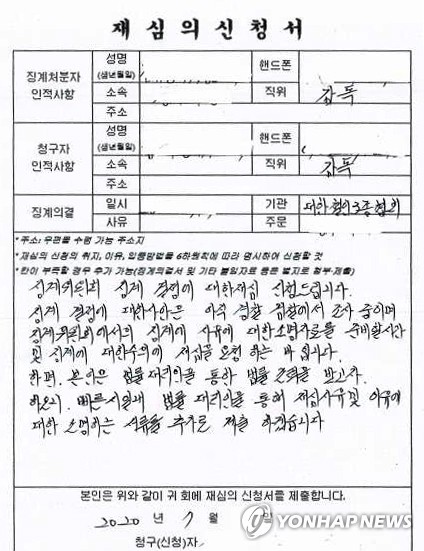 재심의신청서
징계처분자 인적사항
성명 (생년월일)
핸드폰
소속
직위
감독
주소
청구자 인적사항
성명 (생년월일)
핸드폰
소속
직위
감독
주소
징계의결
일시
기관
대한철인3종협회
사유
주문
*주소: 우편물 수령 가능 주소지
*재심의 신청의 취지, 이유, 입증방법을 6하원칙에 따라 명시하여 신청할 것
*칸이 부족할 경우 추가 가능(징계의결서 및 기타 붙임자료 등은 별지로 첨부·제출)
징계위원회 징계 결정에 대한재심 신청드립니다.
징계 결정에 대한사안은 아직 경찰 검찰에서 조사 중이며
징계위원회에서의 징계에 사유에 대한소명자료를 준비할시간
및 징계에 대한수위에 재심을 요청 하는 바 입니다.
한편. 본인은 법률 대리인을 통한 법률 조력을 받고자.
하오니. 빠른시일내 법률 대리인을 통해 재심사유및 이유에
대한 소명하는 서류를 추가로 제출 하겠습니다
본인은 위와 같이 귀 회에 재심의 신청서를 제출합니다.
2020 년 7 월 일
청구(신청)자
YONHAP NEWS